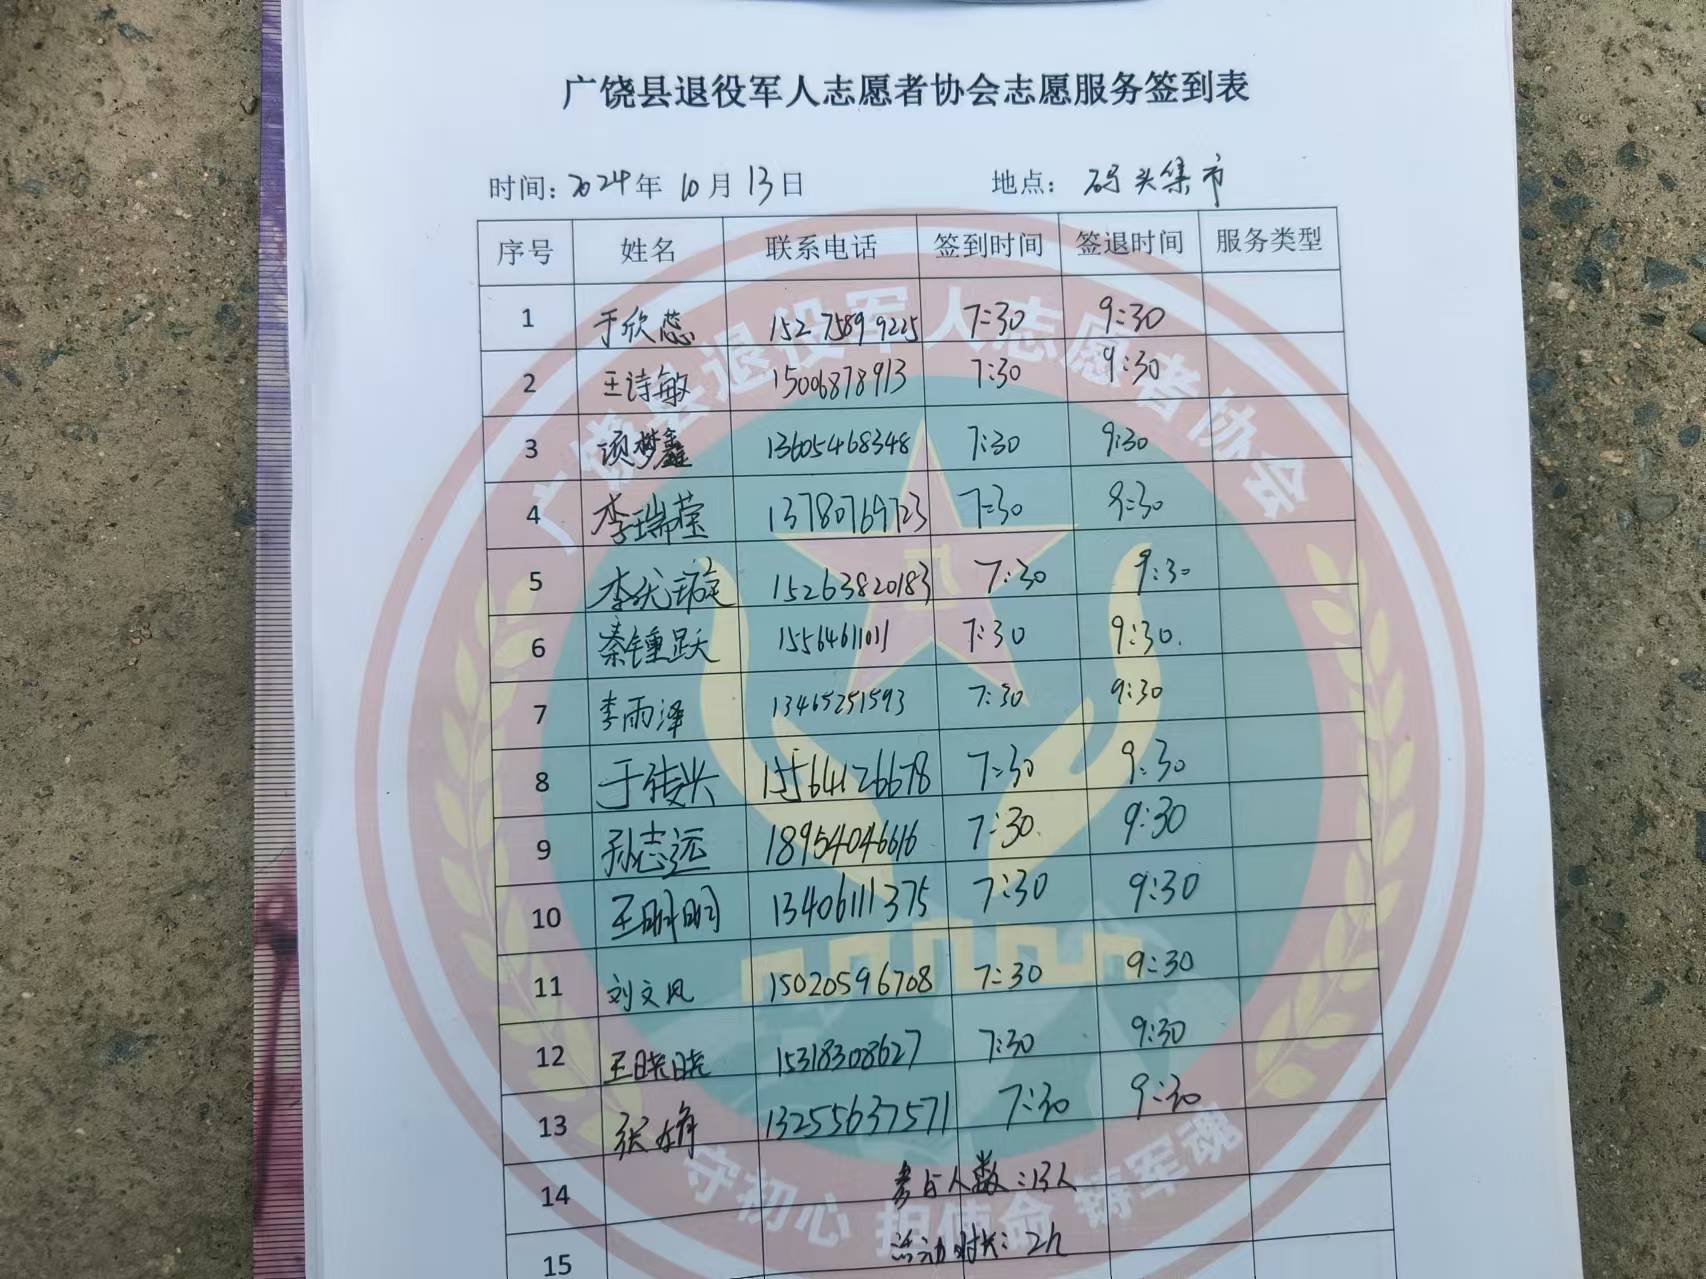 广饶县退役军人志愿者协会志愿服务签到表
时间：2024年 10月 13日 地点： 码头集市
序号 姓名 联系电话 签到时间 签退时间 服务类型
1 于欣蕊 15275899225 7:30 9:30
2 王诗敏 15006878913 7:30 9:30
3 项梦鑫 13605468348 7:30 9:30
4 李瑞莹 13780769723 7:30 9:30
5 李优璇 15263820183 7:30 9:30
6 秦锺跃 15564611011 7:30 9:30
7 李雨泽 13465251593 7:30 9:30
8 于传兴 15564126678 7:30 9:30
9 孙志远 18954046616 7:30 9:30
10 王明明 13406111375 7:30 9:30
11 刘文凤 15020596708 7:30 9:30
12 王晓晓 15318308627 7:30 9:30
13 张 13255637571 7:30 9:30
14 参与人数：13人
15 活动时长：2h
广饶县退役军人志愿者协会
守初心 担使命 铸军魂